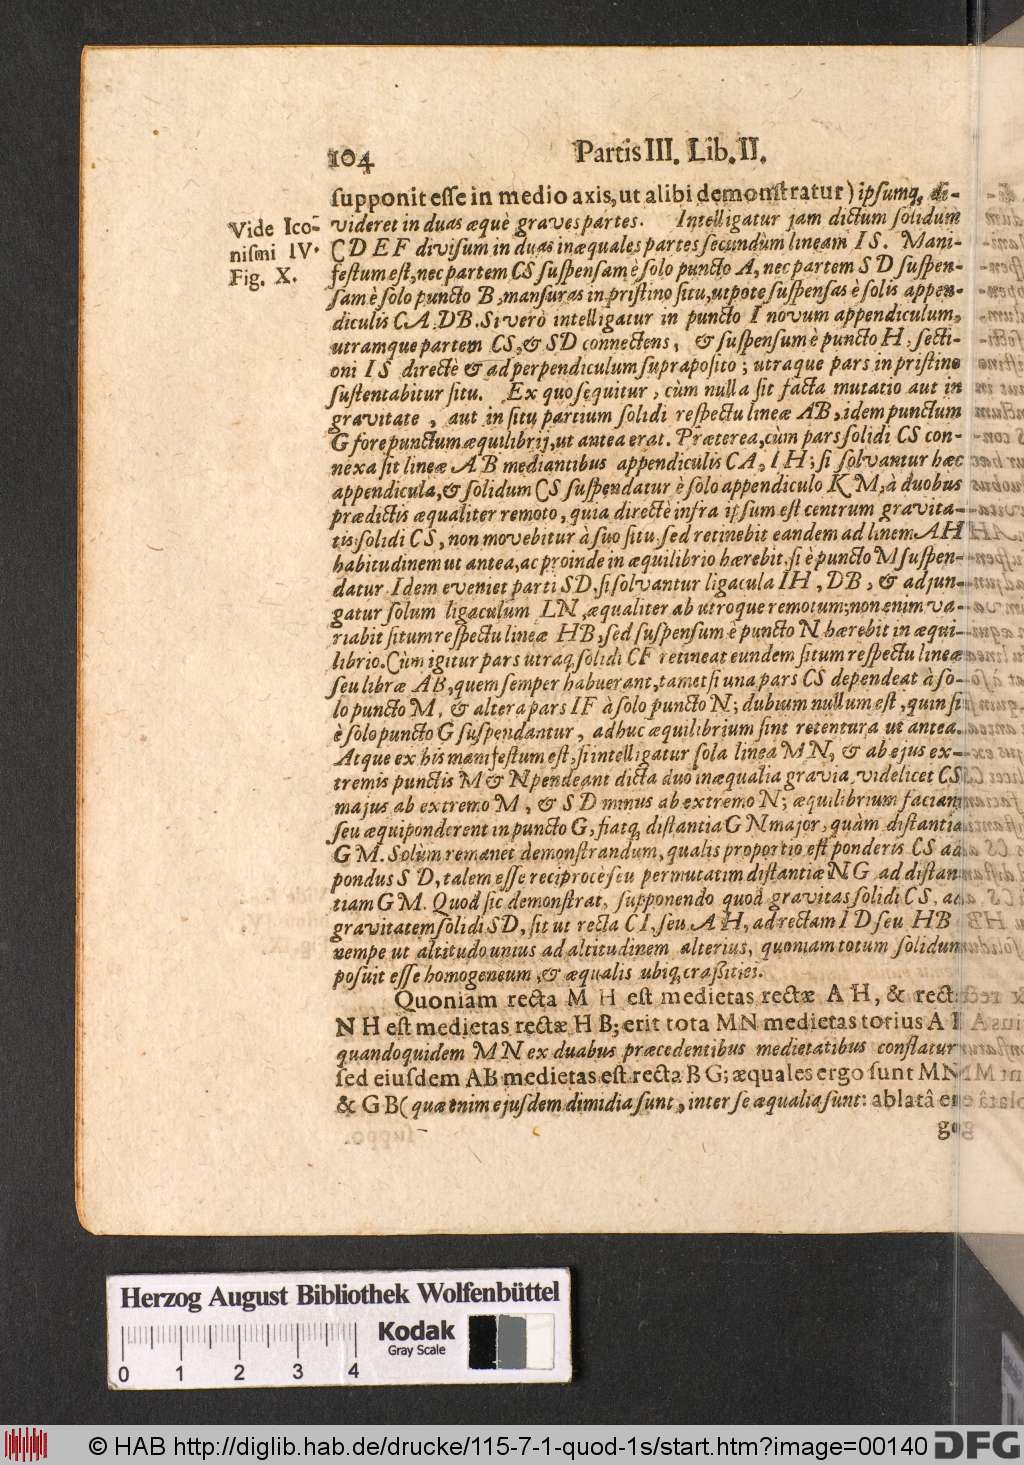 104
Partis III. Lib. II.
Vide Ico-
niſmi IV.
Fig. X.
ſupponit eſſe in medio axis, ut alibi demonſtratur) ipſumq, di-
videret in duas æquè graves partes. Intelligatur jam dictum ſolidum
C D E F diviſum in duas inæquales partes ſecundùm lineam I S. Mani-
feſtum eſt, nec partem CS ſuſpenſam è ſolo puncto A, nec partem S D ſuſpen-
ſam è ſolo puncto B, manſuras in priſtino ſitu, utpote ſuſpenſas è ſolis appen-
diculis CA, DB. Si verò intelligatur in puncto I novum appendiculum,
utramque partem CS, & SD connectens, & ſuſpenſum è puncto H, ſecti-
oni I S directè & ad perpendiculum ſupra poſito; utraque pars in priſtino
ſuſtentabitur ſitu. Ex quo ſequitur, cùm nulla ſit facta mutatio aut in
gravitate, aut in ſitu partium ſolidi reſpectu lineæ AB, idem punctum
G fore punctum æquilibrij, ut antea erat. Præterea, cùm pars ſolidi CS con-
nexa ſit lineæ AB mediantibus appendiculis CA, IH; ſi ſolvantur hæc
appendicula, & ſolidum CS ſuſpendatur è ſolo appendiculo K M, à duobus
prædictis æqualiter remoto, quia directè infra ipſum eſt centrum gravita-
tis ſolidi CS, non movebitur à ſuo ſitu, ſed retinebit eandem ad lineam AH
habitudinem ut antea, ac proinde in æquilibrio hærebit, ſi è puncto M ſuſpen-
datur Idem eveniet parti SD, ſi ſolvantur ligacula IH, DB, & adjun-
gatur ſolum ligaculum LN, æqualiter ab utroque remotum; non enim va-
riabit ſitum reſpectu lineæ HB, ſed ſuſpenſum è puncto N hærebit in æqui-
librio. Cùm igitur pars utraq, ſolidi CF retineat eundem ſitum reſpectu lineæ
ſeu libræ AB, quem ſemper habuerant, tametſi una pars CS dependeat à ſo-
lo puncto M, & altera pars IF à ſolo puncto N; dubium nullum eſt, quin ſi
è ſolo puncto G ſuſpendantur, adhuc æquilibrium ſint retentura ut antea.
Atque ex his manifeſtum eſt, ſi intelligatur ſola linea MN, & ab ejus ex-
tremis punctis M & N pendeant dicta duo inæqualia gravia, videlicet CS
majus ab extremo M, & SD minus ab extremo N; æquilibrium faciant
ſeu æquiponderent in puncto G, fiatq, diſtantia G N major, quàm diſtantia
G M. Solùm remanet demonſtrandum, qualis proportio eſt ponderis CS ad
pondus S D, talem eſſe reciprocè ſeu permutatim diſtantiæ NG ad diſtan
tiam GM. Quod ſic demonſtrat, ſupponendo quod gravitas ſolidi CS, ad
gravitatem ſolidi SD, ſit ut recta CI, ſeu AH, ad rectam ID ſeu HB
nempe ut altitudo unius ad altitudinem alterius, quoniam totum ſolidum
poſuit eſſe homogeneum, & æqualis ubiq, craſſitiei.
Quoniam recta M H eſt medietas rectæ A H, & rect
N H eſt medietas rectæ H B; erit tota MN medietas totius A
quandoquidem MN ex duabus præcedentibus medietatibus conflatur
ſed eiuſdem AB medietas eſt recta B G; æquales ergo ſunt MN
& G B (quæ enim ejuſdem dimidia ſunt, inter ſe æqualia ſunt: ablatâ er
go
Herzog August Bibliothek Wolfenbüttel
0 1 2 3 4
Kodak
Gray Scale
© HAB http://diglib.hab.de/drucke/115-7-1-quod-1s/start.htm?image=00140
DFG